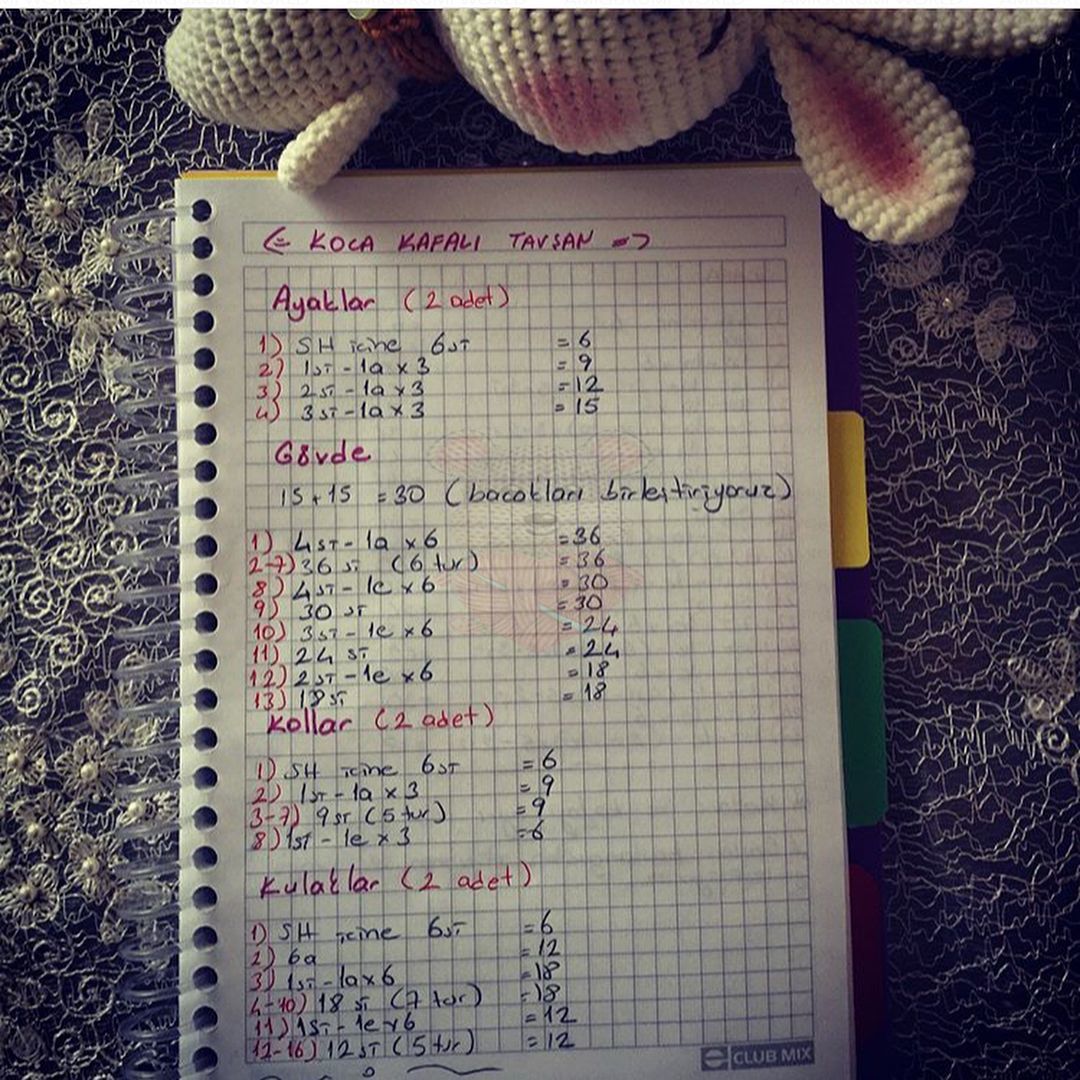 <= KOCA KAFALI TAVŞAN =>
Ayaklar (2 adet)
1) SH içine 6ST = 6
2) 1ST - 1a x 3 = 9
3) 2ST - 1a x 3 = 12
4) 3ST - 1a x 3 = 15
Gövde
15 + 15 = 30 (bacakları birleştiriyoruz)
1) 4ST - 1a x 6 = 36
2-7) 36 ST (6 tur) = 36
8) 4ST - 1e x 6 = 30
9) 30 ST = 30
10) 3ST - 1e x 6 = 24
11) 24 ST = 24
12) 2ST - 1e x 6 = 18
13) 18 ST = 18
Kollar (2 adet)
1) SH içine 6ST = 6
2) 1ST - 1a x 3 = 9
3-7) 9ST (5 tur) = 9
8) 1ST - 1e x 3 = 6
Kulaklar (2 adet)
1) SH içine 6ST = 6
2) 6a = 12
3) 1ST - 1a x 6 = 18
4-10) 18 ST (7 tur) = 18
11) 1ST - 1e x 6 = 12
12-16) 12 ST (5 tur) = 12
CLUB MIX